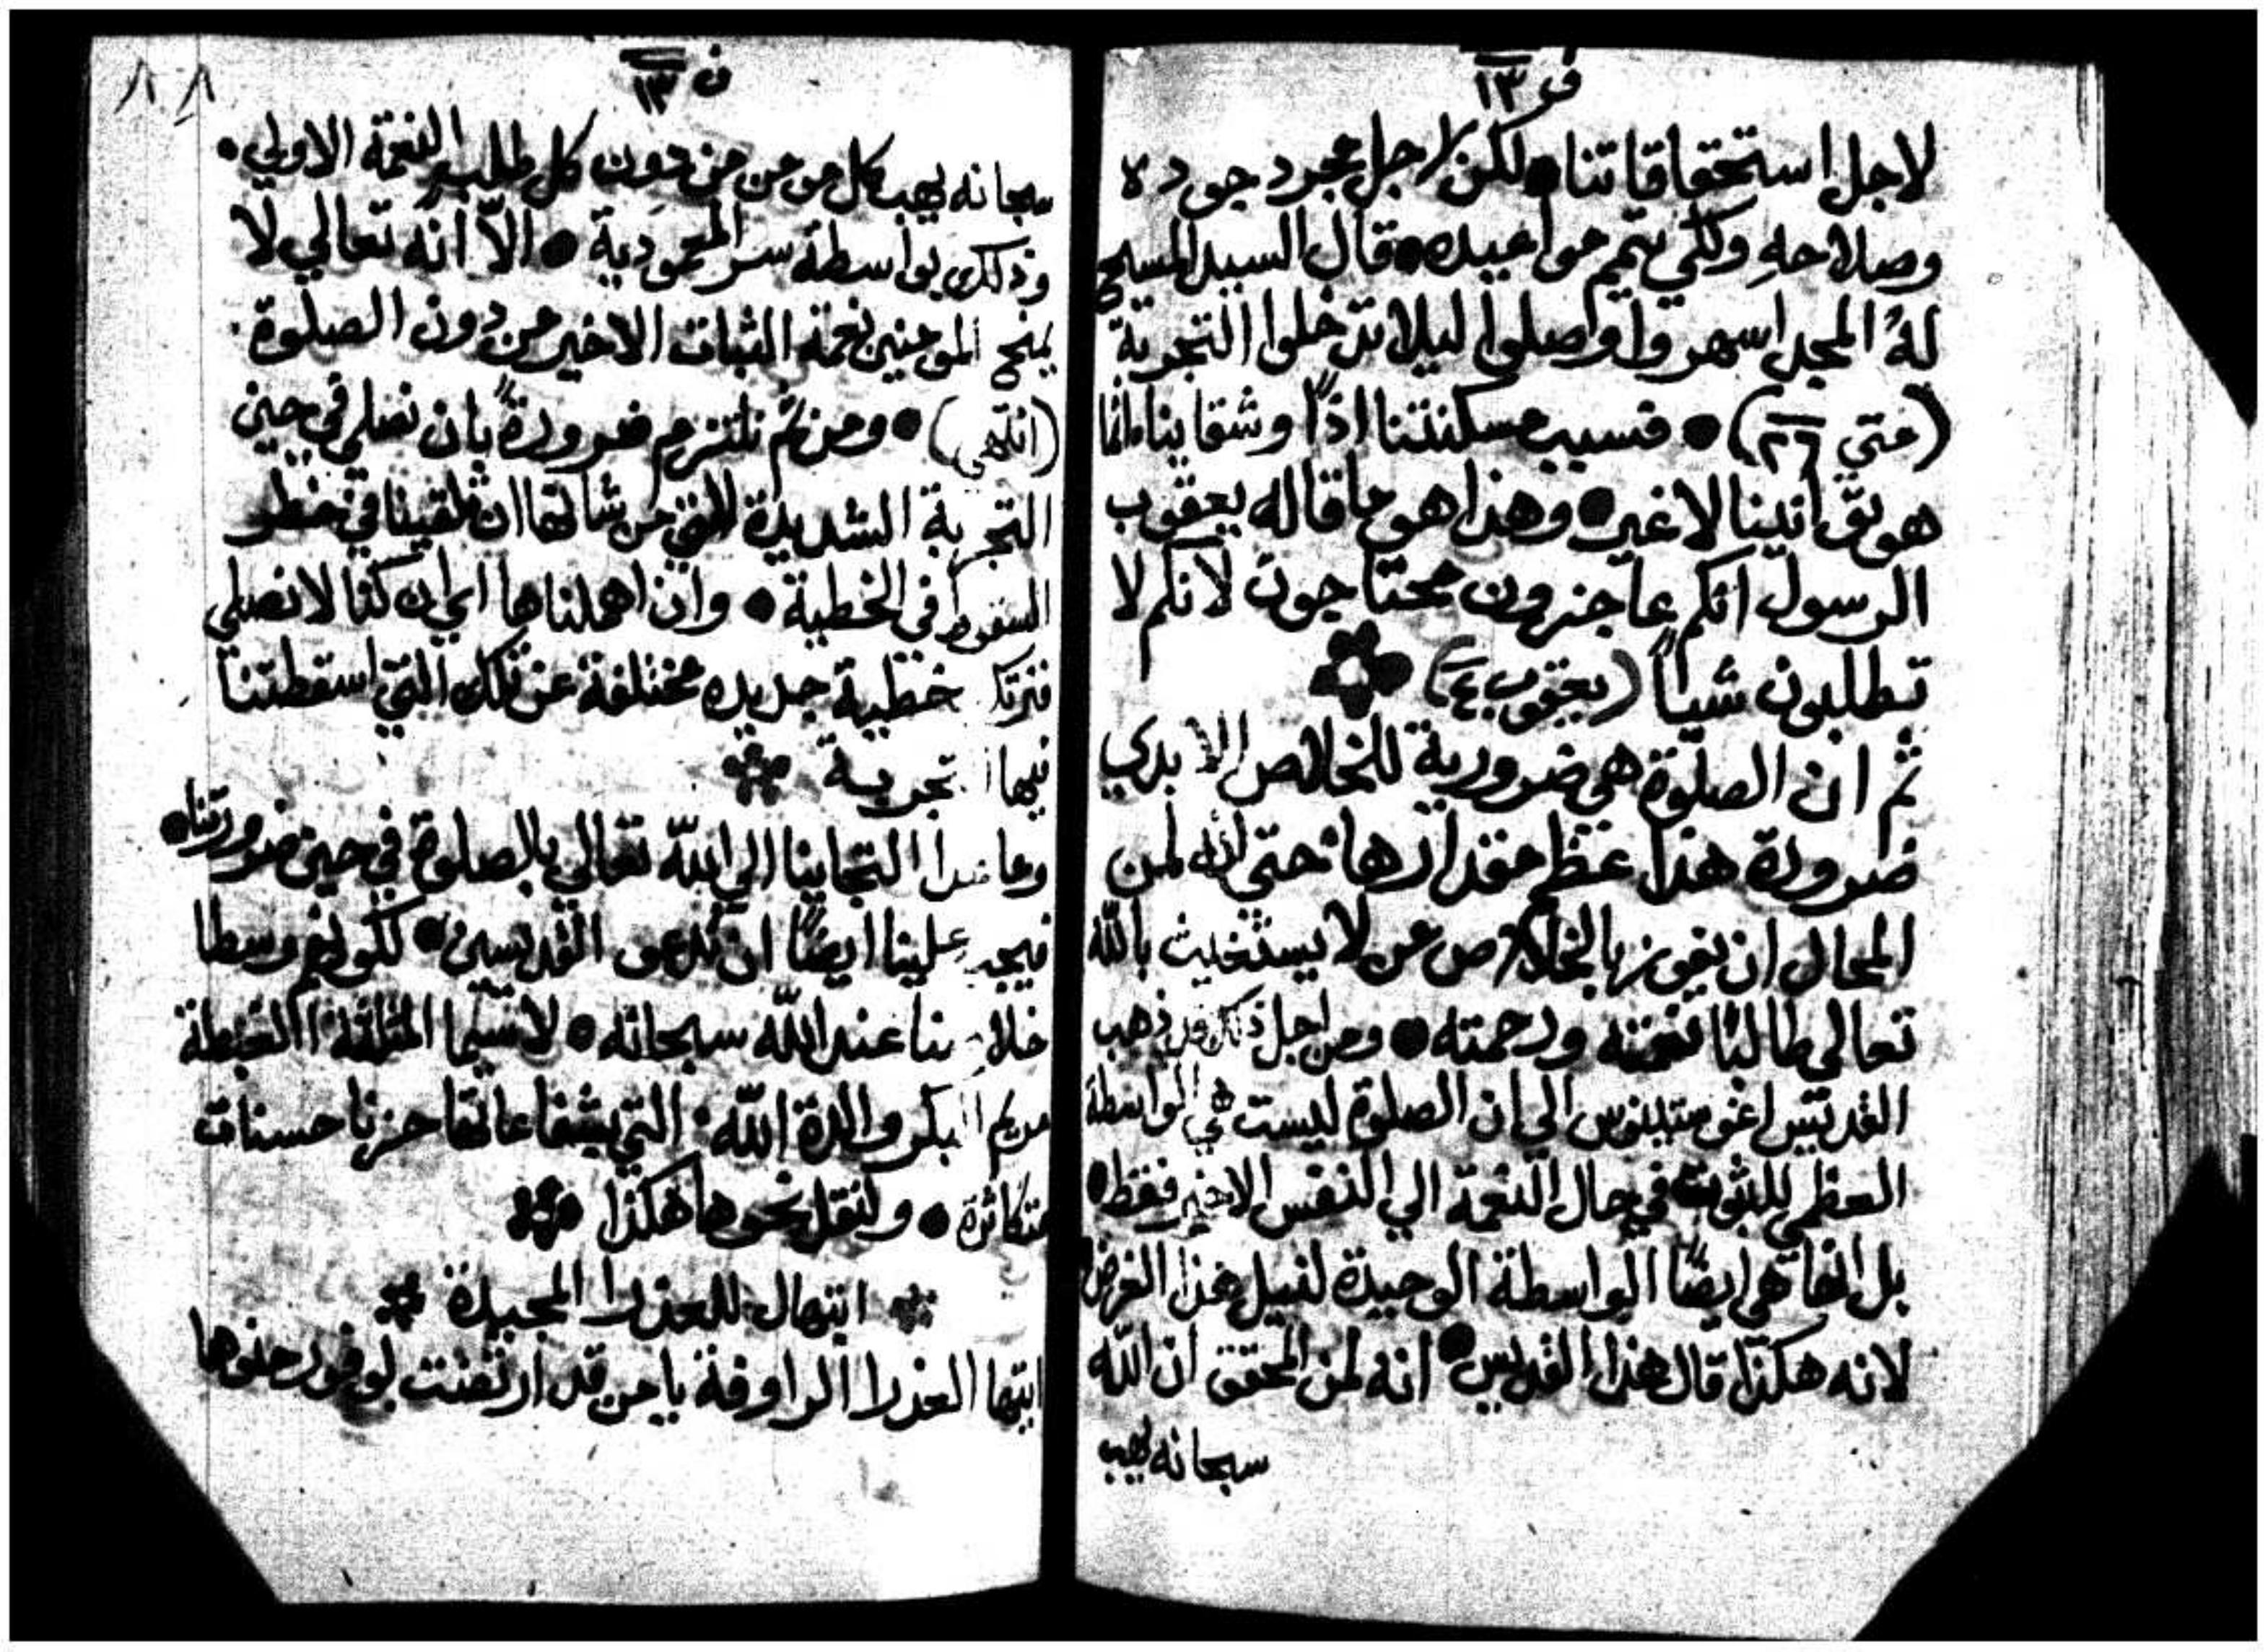 ف ١٣
لاجل استحقاقاتنا • لكن لاجل مجرد جوده
وصلاحه ولكي يتمم مواعيده • قال السيد المسيح
لهُ المجد اسهروا وصلوا ليلا تدخلوا التجربة
(متي ٢٦) • فسبب مسكنتنا اذًا وشقاينا انما
هو توانينا لا غير • وهذا هو ما قاله يعقوب
الرسول انكم عاجزون محتاجون لانكم لا
تطلبون شياً (يعقوب ٤)
ثم ان الصلوة هي ضرورية للخلاص الابدي
ضرورة هذا عظم مقدارها حتي انه لمن
المحال ان يفوز بالخلاص من لا يستغيث بالله
تعالي طالبًا نعمته ورحمته • ومن اجل ذلك قد ذهب
القديس اغوستينوس الي ان الصلوة ليست هي الواسطة
العظمي للثبوت في حال النعمة الي النفس الاخير فقط •
بل انها هي ايضًا الواسطة الوحيدة لنيل هذا الغرض
لانه هكذا قال هذا القديس • انه لمن المحقق ان الله
سبحانه يهب
ف ١٣
سبحانه يهب كل من من دون كل طلب النعمة الاولي •
وذلك بواسطة سر المعمودية • الّا انه تعالي لا
يمنح المومنين نعمة الثبات الاخير من دون الصلوة •
(انتهي) • ومن ثم نلتزم ضرورةً بان نصلي في حين
التجربة الشديدة التي من شانها ان تلقينا في خطر
السقوط في الخطية • وان اهملناها اي ان كنا لا نصلي
فنرتكـ خطية جديده مختلفة عن تلك التي اسقطتنا
فيها تجربة
وما عدا التجاينا الي الله تعالي بالصلوة في حين ضرورتنا •
فيجب علينا ايضًا ان ندعو القديسين • لكونهم وسطا
خلاصنا عند الله سبحانه • لا سيما المثلثة الغبطة
مريم البكر والدة الله • التي بشفاعاتها حزنا حسنات
متكاثرة • ولنقل نحوها هكذا
ابتهال للعذرا المجيدة
ايتها العذرا الراوفة يا من قد ارتضت لوفور حنوها